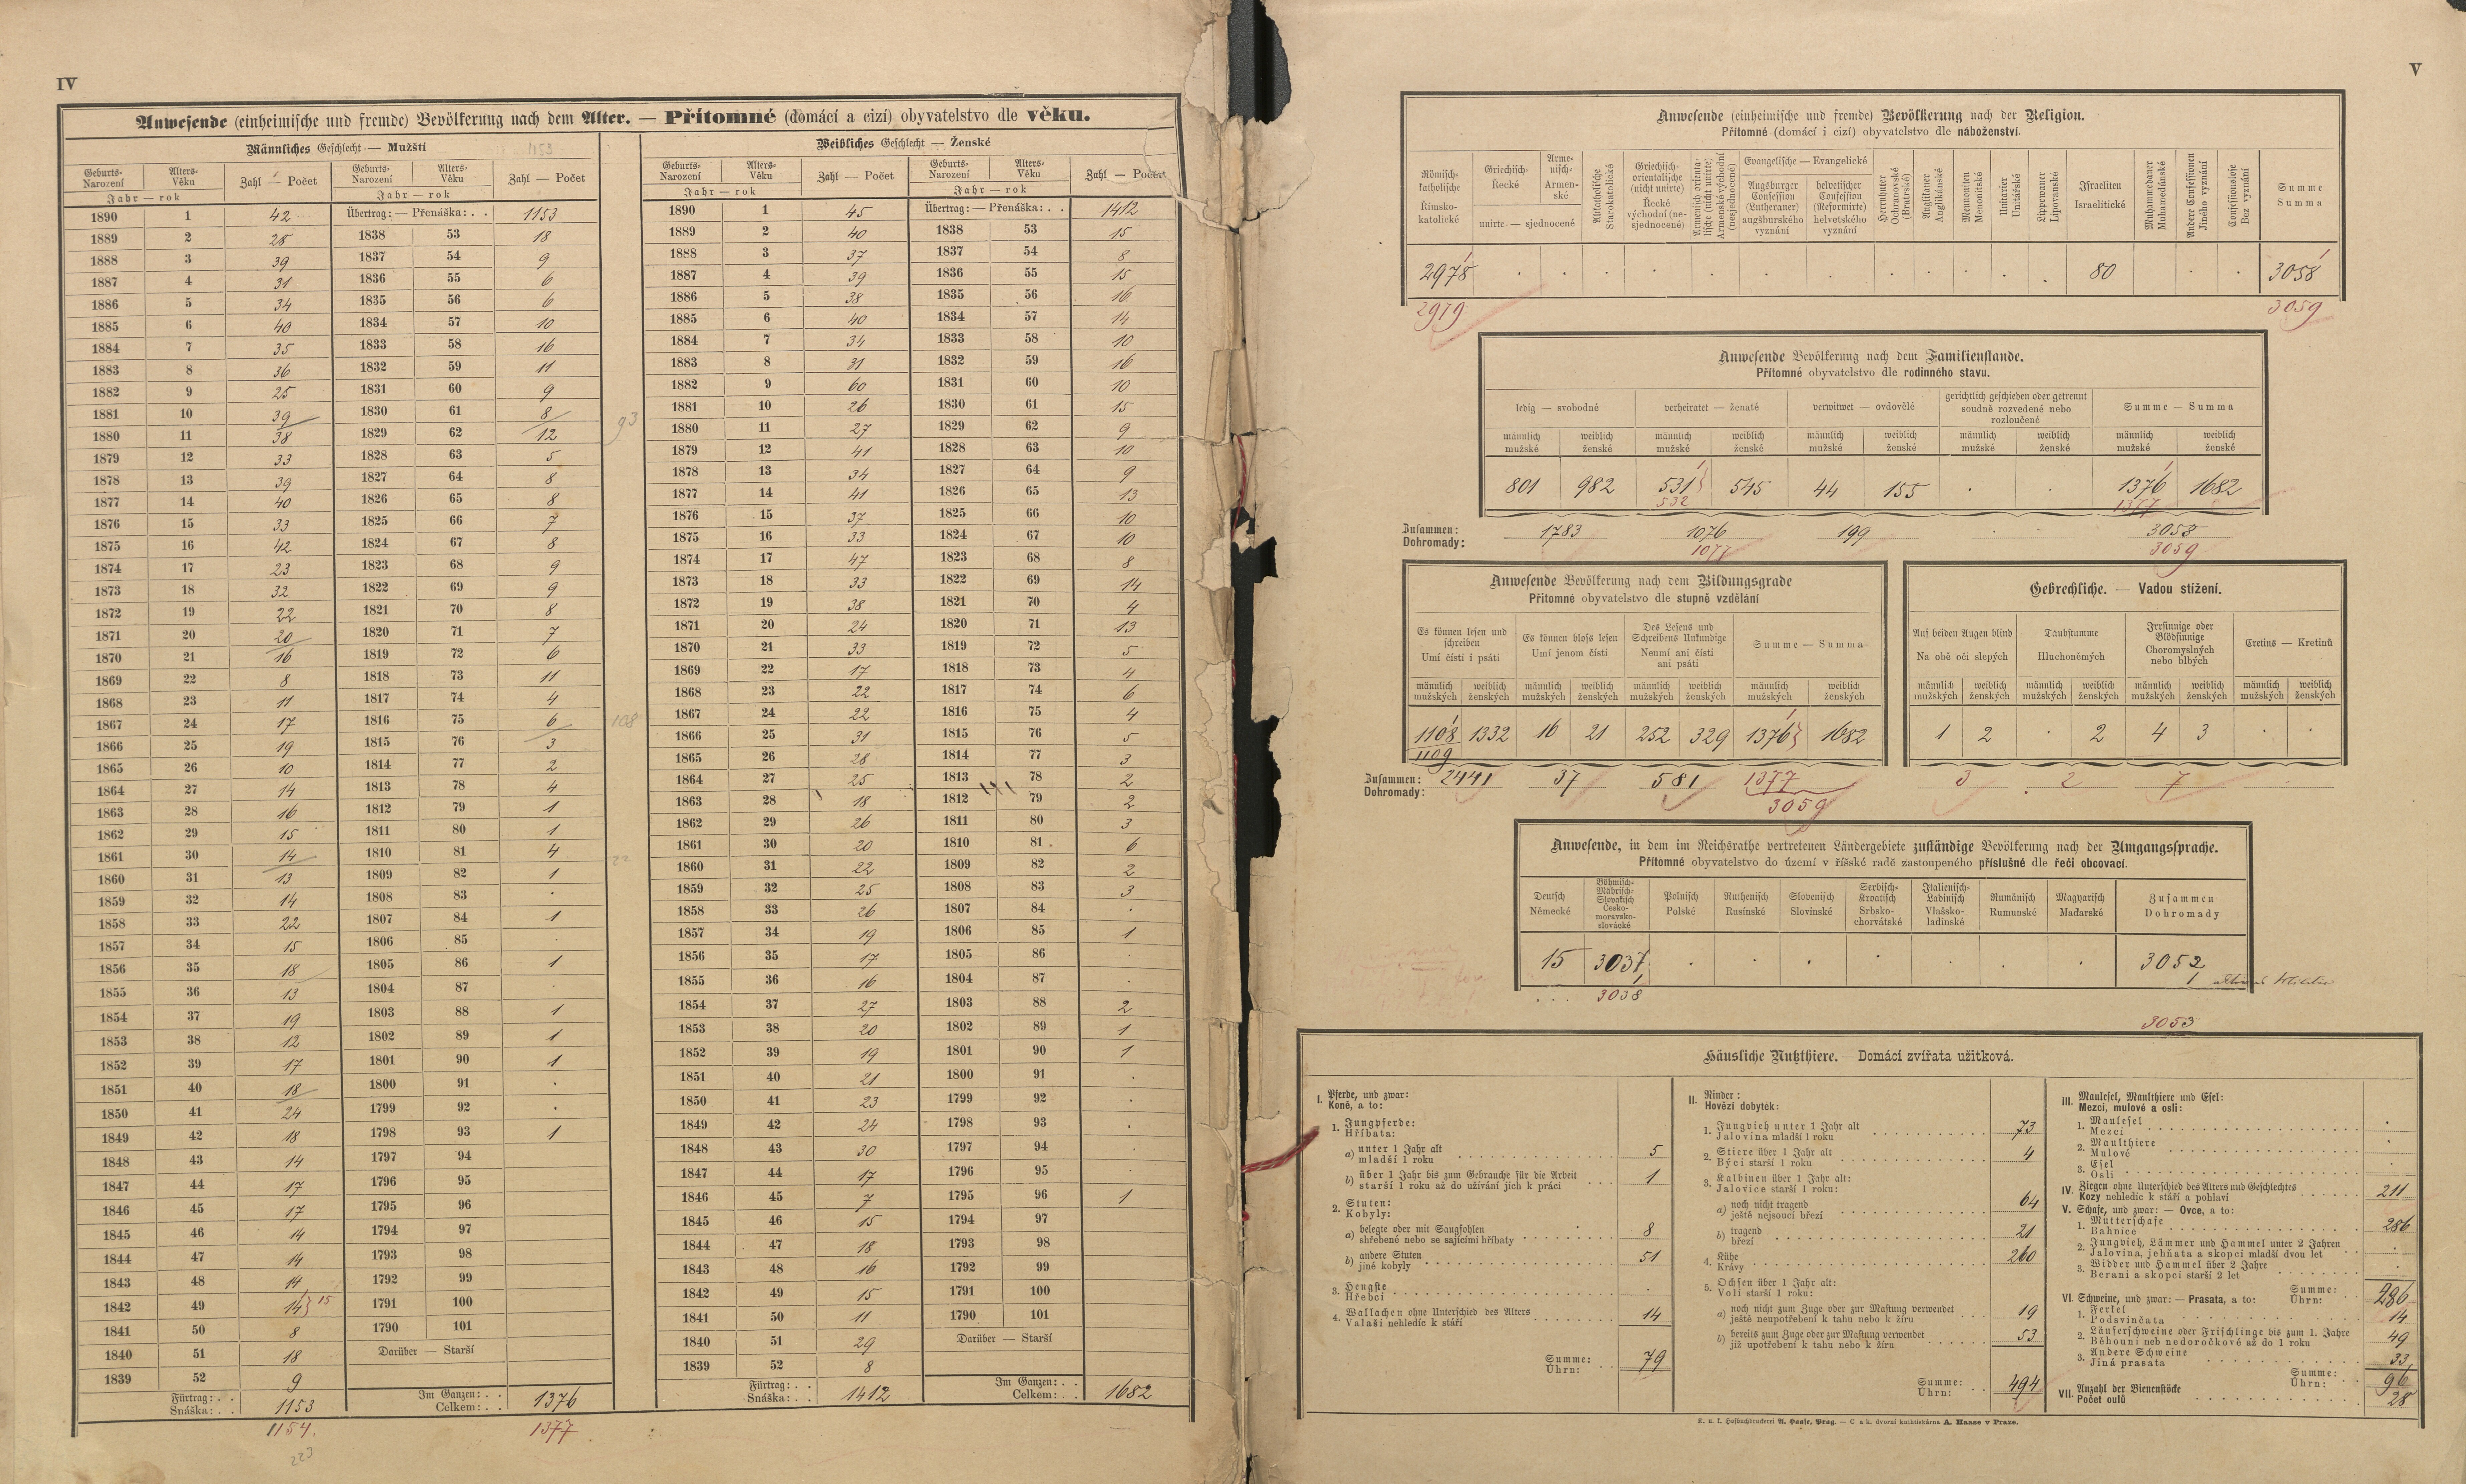 IV
Anwesende (einheimische und fremde) Bevölkerung nach dem Alter. — Přítomné (domácí a cizí) obyvatelstvo dle věku.
Männliches Geschlecht — Mužští 1153
Geburts- Narození Alters- Věku Zahl — Počet Geburts- Narození Alters- Věku Zahl — Počet
Jahr — rok Jahr — rok
1890 1 42 Übertrag: — Přenáška: . . 1153
1889 2 28 1838 53 18
1888 3 39 1837 54 9
1887 4 31 1836 55 6
1886 5 34 1835 56 6
1885 6 40 1834 57 10
1884 7 35 1833 58 16
1883 8 36 1832 59 11
1882 9 25 1831 60 9
1881 10 39 1830 61 8
1880 11 38 1829 62 12
1879 12 33 1828 63 5
1878 13 39 1827 64 8
1877 14 40 1826 65 8
1876 15 33 1825 66 7
1875 16 42 1824 67 8
1874 17 23 1823 68 9
1873 18 32 1822 69 9
1872 19 22 1821 70 8
1871 20 20 1820 71 7
1870 21 16 1819 72 6
1869 22 8 1818 73 11
1868 23 11 1817 74 4
1867 24 17 1816 75 6
1866 25 19 1815 76 3
1865 26 10 1814 77 2
1864 27 14 1813 78 4
1863 28 16 1812 79 1
1862 29 15 1811 80 1
1861 30 14 1810 81 4
1860 31 13 1809 82 1
1859 32 14 1808 83 .
1858 33 22 1807 84 1
1857 34 15 1806 85 .
1856 35 18 1805 86 1
1855 36 13 1804 87 .
1854 37 19 1803 88 1
1853 38 12 1802 89 1
1852 39 17 1801 90 1
1851 40 18 1800 91 .
1850 41 24 1799 92 .
1849 42 18 1798 93 1
1848 43 14 1797 94
1847 44 17 1796 95
1846 45 17 1795 96
1845 46 14 1794 97
1844 47 14 1793 98
1843 48 14 1792 99
1842 49 14 15 1791 100
1841 50 8 1790 101
1840 51 18 Darüber — Starší
1839 52 9
Fürtrag: . . Snáška: . . 1153 Im Ganzen: . . Celkem: . . 1376
1154. 1377
223
93
108
22
Weibliches Geschlecht — Ženské
Geburts- Narození Alters- Věku Zahl — Počet Geburts- Narození Alters- Věku Zahl — Počet
Jahr — rok Jahr — rok
1890 1 45 Übertrag: — Přenáška: . . 1412
1889 2 40 1838 53 15
1888 3 37 1837 54 8
1887 4 39 1836 55 15
1886 5 38 1835 56 16
1885 6 40 1834 57 14
1884 7 34 1833 58 10
1883 8 31 1832 59 16
1882 9 60 1831 60 10
1881 10 26 1830 61 15
1880 11 27 1829 62 9
1879 12 41 1828 63 10
1878 13 34 1827 64 9
1877 14 41 1826 65 13
1876 15 37 1825 66 10
1875 16 33 1824 67 10
1874 17 47 1823 68 8
1873 18 33 1822 69 14
1872 19 38 1821 70 4
1871 20 24 1820 71 13
1870 21 33 1819 72 5
1869 22 17 1818 73 4
1868 23 22 1817 74 6
1867 24 22 1816 75 4
1866 25 31 1815 76 5
1865 26 28 1814 77 3
1864 27 25 1813 78 2
1863 28 18 1812 79 2
1862 29 26 1811 80 3
1861 30 20 1810 81 6
1860 31 22 1809 82 2
1859 32 25 1808 83 3
1858 33 26 1807 84 .
1857 34 19 1806 85 1
1856 35 17 1805 86 .
1855 36 16 1804 87 .
1854 37 27 1803 88 2
1853 38 20 1802 89 1
1852 39 19 1801 90 1
1851 40 21 1800 91 .
1850 41 23 1799 92 .
1849 42 24 1798 93 .
1848 43 30 1797 94 .
1847 44 17 1796 95 .
1846 45 7 1795 96 1
1845 46 15 1794 97
1844 47 18 1793 98
1843 48 16 1792 99
1842 49 15 1791 100
1841 50 11 1790 101
1840 51 29 Darüber — Starší
1839 52 8
Fürtrag: . . Snáška: . . 1412 Im Ganzen: . . Celkem: . . 1682
V
Anwesende (einheimische und fremde) Bevölkerung nach der Religion.
Přítomné (domácí i cizí) obyvatelstvo dle náboženství.
Römisch-katholische Římsko-katolické
Griechisch- Řecké
Armenisch- Armenské
unirte — sjednocené
Altkatholische Starokatolické
Griechisch-orientalische (nicht unirte) Řecké východní (nesjednocené)
Armenisch orientalische (nicht unirte) Arménské východní (nesjednocené)
Evangelische — Evangelické
Augsburger Confession (Lutheraner) augšburského vyznání
helvetischer Confession (Reformirte) helvetského vyznání
Herrnhuter Ochranovské (Bratrské)
Anglikaner Anglikánské
Mennoniten Menonitské
Unitarier Unitářské
Lippowaner Lipovanské
Israeliten Israelitické
Muhammedaner Muhamedánské
Andere Confessionen Jiného vyznání
Confessionslose Bez vyznání
Summe Summa
2978 . . . . . . . . . . . . 80 . . . 3058
2979 3059
Anwesende Bevölkerung nach dem Familienstande.
Přítomné obyvatelstvo dle rodinného stavu.
ledig — svobodné verheiratet — ženaté verwitwet — ovdovělé gerichtlich geschieden oder getrennt soudně rozvedené nebo rozloučené Summe — Summa
männlich mužské weiblich ženské männlich mužské weiblich ženské männlich mužské weiblich ženské männlich mužské weiblich ženské männlich mužské weiblich ženské
801 982 531 545 44 155 . . 1376 1682
532 1377
Zusammen: Dohromady: 1783 1076 199 3058
1077 3059
Anwesende Bevölkerung nach dem Bildungsgrade
Přítomné obyvatelstvo dle stupně vzdělání
Es können lesen und schreiben Umí čísti i psáti
Es können bloss lesen Umí jenom čísti
Des Lesens und Schreibens Unkundige Neumí ani čísti ani psáti
Summe — Summa
männlich mužských weiblich ženských männlich mužských weiblich ženských männlich mužských weiblich ženských männlich mužských weiblich ženských
1108 1332 16 21 252 329 1376 1682
1109
Zusammen: Dohromady: 2441 37 581 1377
3059
Gebrechliche. — Vadou stížení.
Auf beiden Augen blind Na obě oči slepých
Taubstumme Hluchoněmých
Irrsinnige oder Blödsinnige Choromyslných nebo blbých
Cretins — Kretinů
männlich mužských weiblich ženských männlich mužských weiblich ženských männlich mužských weiblich ženských männlich mužských weiblich ženských
1 2 . 2 4 3 . .
3 2 7 .
Anwesende, in dem im Reichsrathe vertretenen Ländergebiete zuständige Bevölkerung nach der Umgangssprache.
Přítomné obyvatelstvo do území v říšské radě zastoupeného příslušné dle řeči obcovací.
Deutsch Německé
Böhmisch-Mährisch-Slovakisch Česko-moravsko-slovácké
Polnisch Polské
Ruthenisch Rusínské
Slovenisch Slovinské
Serbisch-Kroatisch Srbsko-chorvátské
Italienisch-Ladinisch Vlašsko-ladinské
Rumänisch Rumunské
Magyarisch Maďarské
Zusammen Dohromady
15 3037 . . . . . . . 3052
1 1
3038
3053
Häusliche Nutzthiere. — Domácí zvířata užitková.
I. Pferde, und zwar: Koně, a to:
1. Jungpferde: Hříbata:
a) unter 1 Jahr alt mladší 1 roku 5
b) über 1 Jahr bis zum Gebrauche für die Arbeit starší 1 roku až do užívání jich k práci 1
2. Stuten: Kobyly:
a) belegte oder mit Saugfohlen shřebené nebo se sajícími hříbaty 8
b) andere Stuten jiné kobyly 51
3. Hengste Hřebci .
4. Wallachen ohne Unterschied des Alters Valaši nehledíc k stáří 14
Summe: Úhrn: 79
II. Rinder: Hovězí dobytek:
1. Jungvieh unter 1 Jahr alt Jalovina mladší 1 roku 73
2. Stiere über 1 Jahr alt Býci starší 1 roku 4
3. Kalbinen über 1 Jahr alt: Jalovice starší 1 roku:
a) noch nicht tragend ještě nejsoucí březí 64
b) tragend březí 21
4. Kühe Krávy 260
5. Ochsen über 1 Jahr alt: Voli starší 1 roku:
a) noch nicht zum Zuge oder zur Mastung verwendet ještě neupotřebení k tahu nebo k žíru 19
b) bereits zum Zuge oder zur Mastung verwendet již upotřebení k tahu nebo k žíru 53
Summe: Úhrn: 494
III. Maulesel, Maulthiere und Esel: Mezci, mulové a osli:
1. Maulesel Mezci .
2. Maulthiere Mulové .
3. Esel Osli .
IV. Ziegen ohne Unterschied des Alters und Geschlechtes Kozy nehledíc k stáří a pohlaví 211
V. Schafe, und zwar: — Ovce, a to:
1. Mutterschafe Bahnice 286
2. Jungvieh, Lämmer und Hammel unter 2 Jahren Jalovina, jehňata a skopci mladší dvou let .
3. Widder und Hammel über 2 Jahre Berani a skopci starší 2 let .
Summe: Úhrn: 286
VI. Schweine, und zwar: — Prasata, a to:
1. Ferkel Podsvinčata 14
2. Läuferschweine oder Frischlinge bis zum 1. Jahre Běhouni neb nedoročkové až do 1 roku 49
3. Andere Schweine Jiná prasata 33
Summe: Úhrn: 96
VII. Anzahl der Bienenstöcke Počet oulů 28
K. u. k. Hofbuchdruckerei A. Haase, Prag. — C. a k. dvorní knihtiskárna A. Haase v Praze.